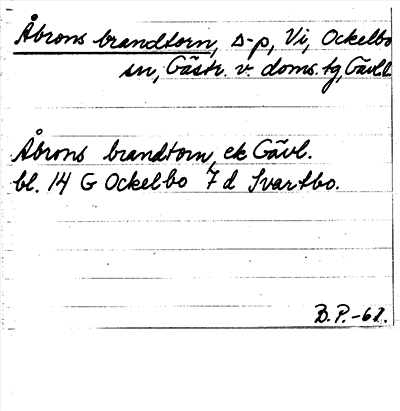 Åbrons brandtorn, s-p, Vi, Ockelbo
sn, Gästr. v. doms. tg, Gävl.l.
Åbrons brandtorn, ek Gävl.
bl. 14 G Ockelbo 7 d Svartbo.
B.P.-62.